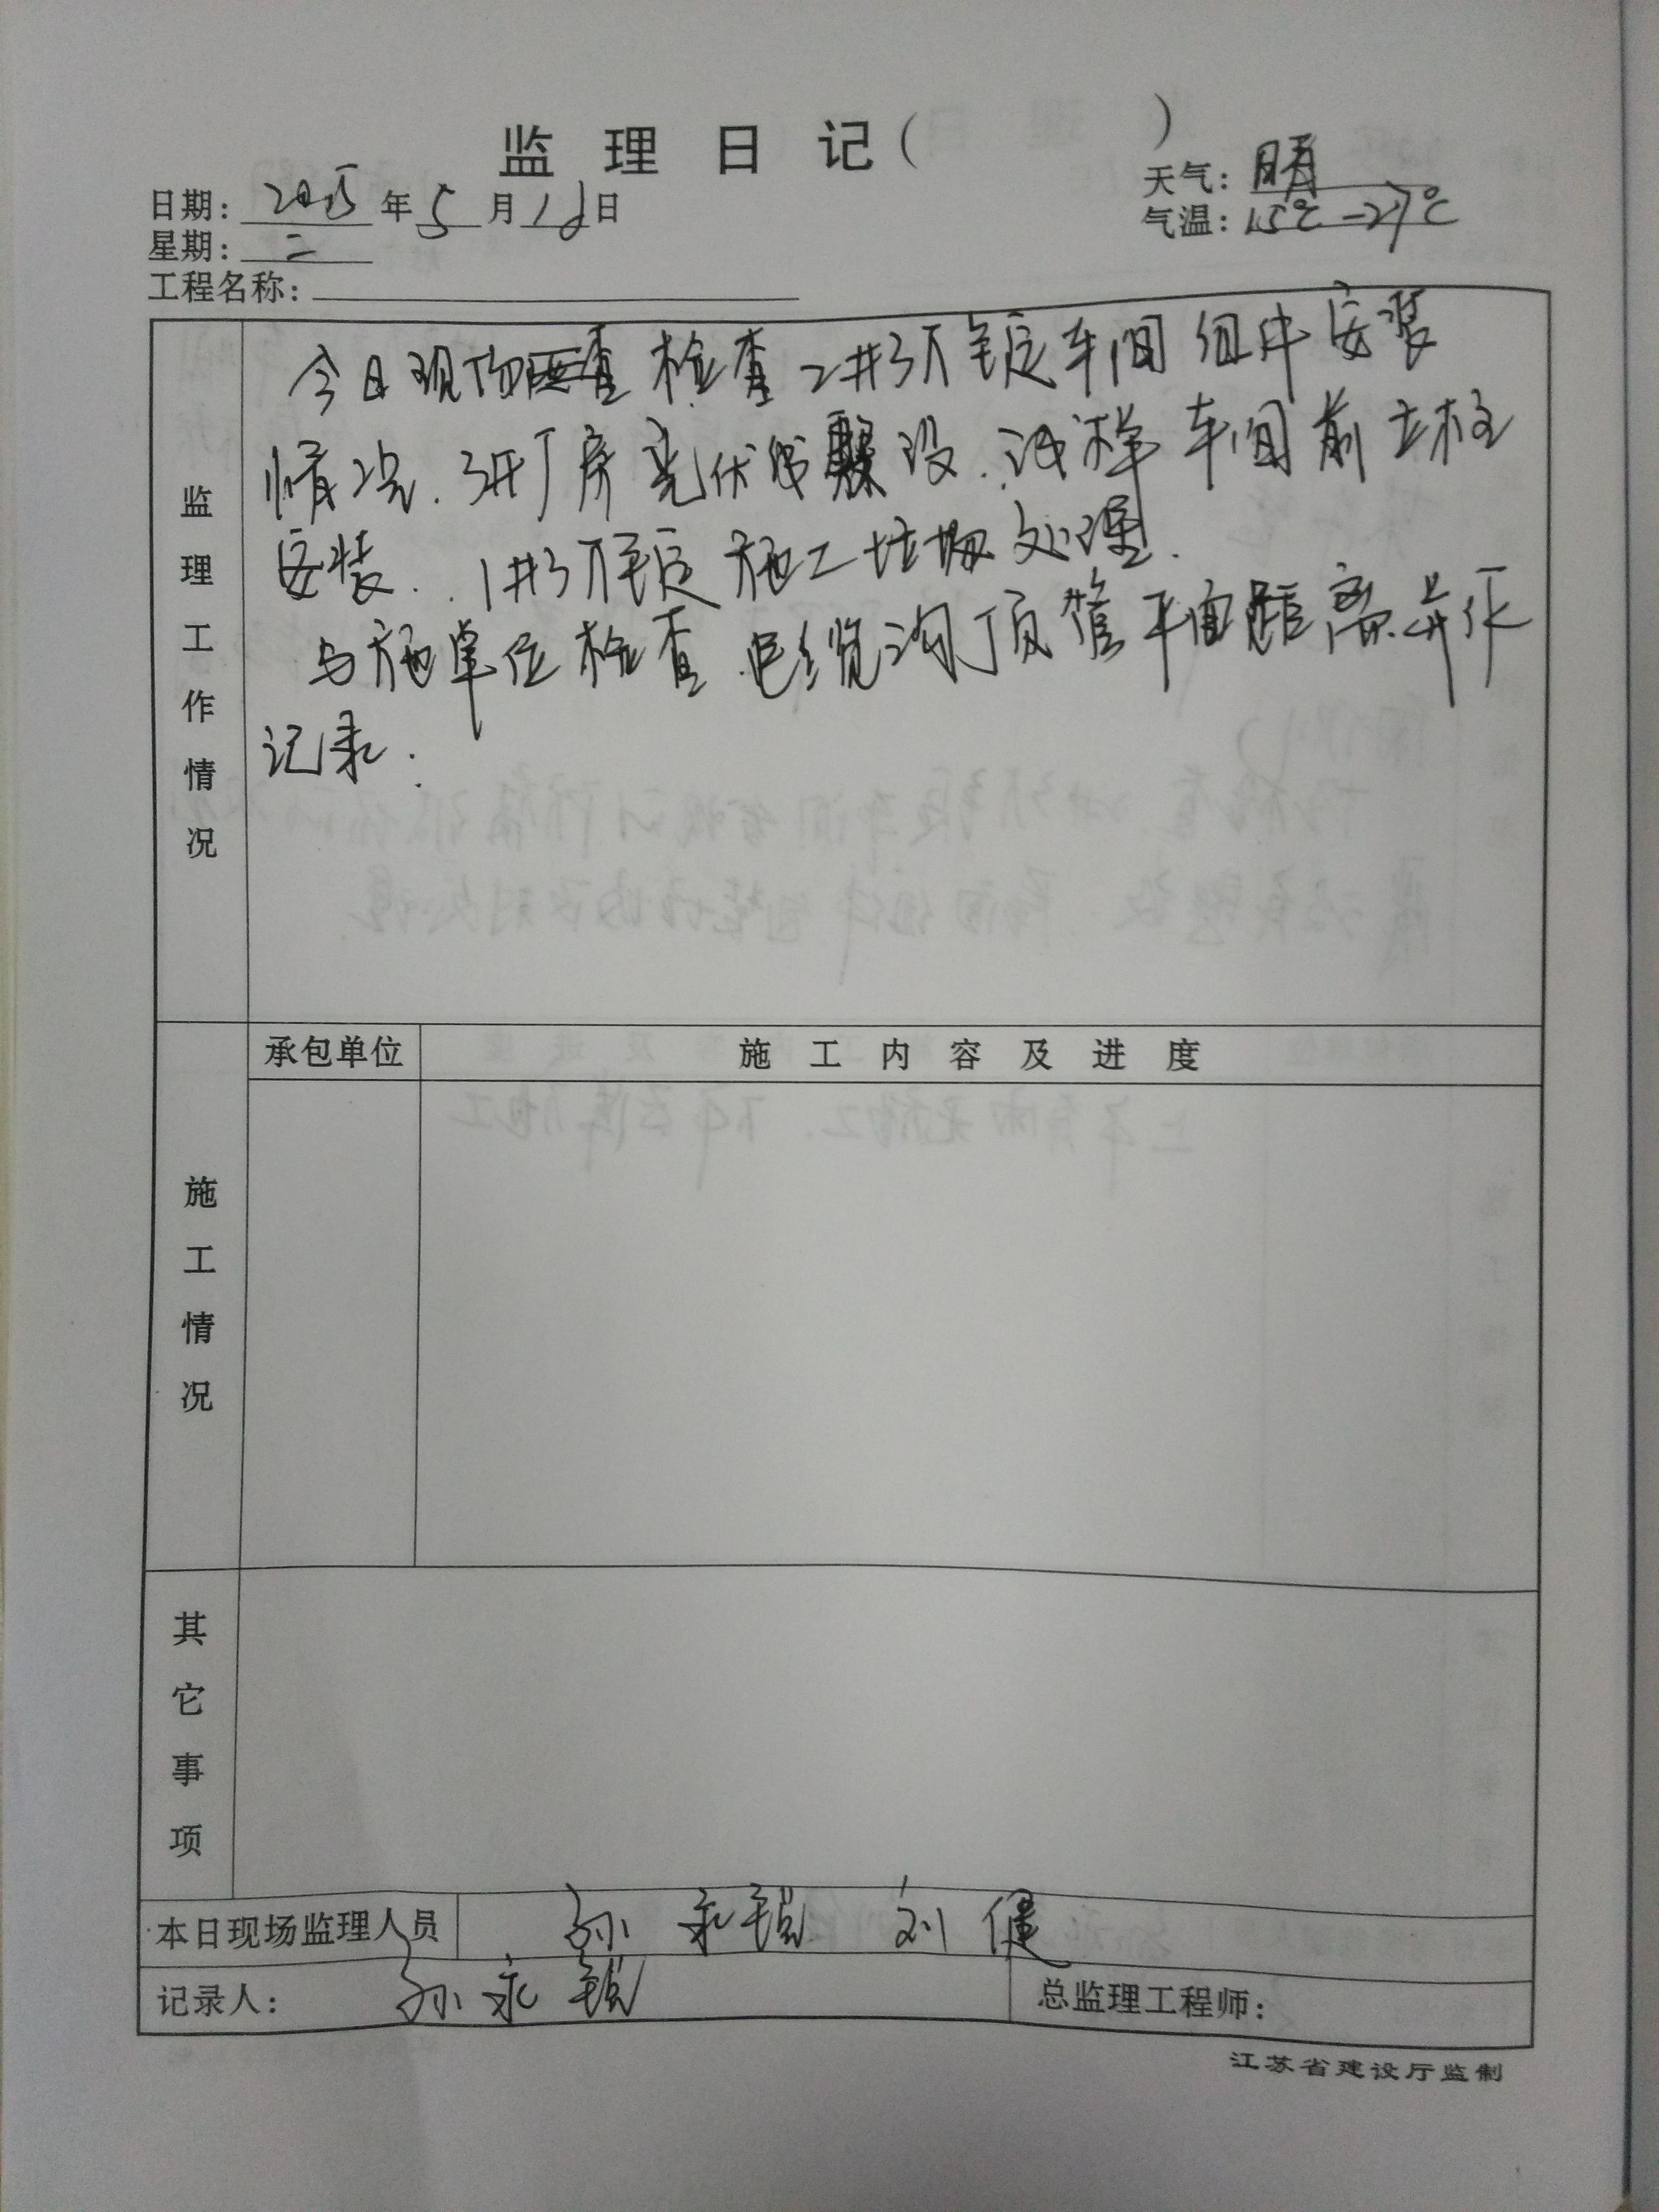 监理日记( )
日期: 2015 年 5 月 18 日
天气: 晴
气温: 15℃-27℃
星期: 二
工程名称:
监理工作情况
今日现场 检查 2#3万锭车间组件安装
情况. 3#厂房光伏 设. 试样车间前立柱
安装. 1#3万锭施工垃圾处理.
与施单位检查电缆沟顶管平面距离并作
记录.
承包单位
施工内容及进度
施工情况
其它事项
本日现场监理人员 孙永锁 刘健
记录人: 孙永锁
总监理工程师:
江苏省建设厅监制